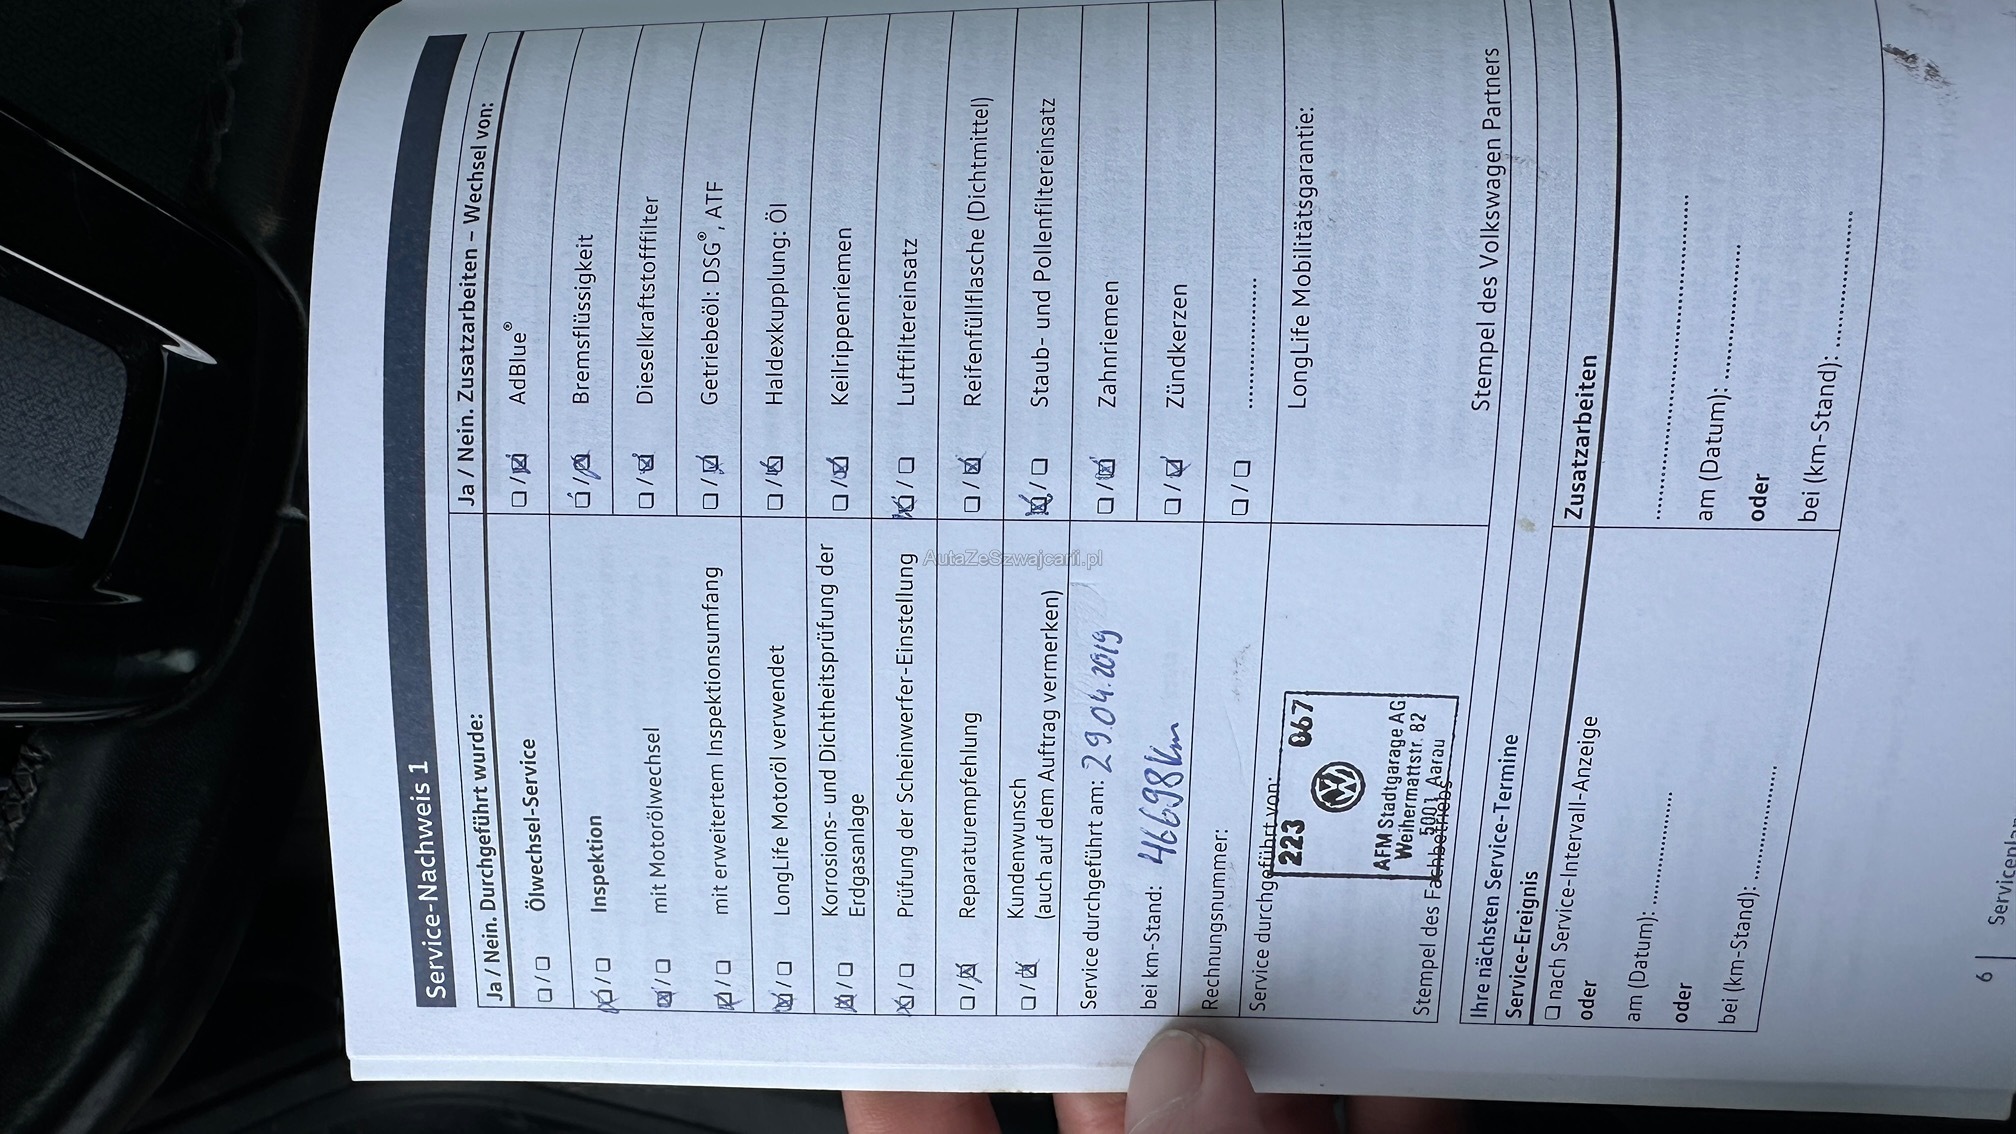 Service-Nachweis 1
Ja / Nein. Durchgeführt wurde:
Ölwechsel-Service
Inspektion
mit Motorölwechsel
mit erweitertem Inspektionsumfang
LongLife Motoröl verwendet
Korrosions- und Dichtheitsprüfung der
Erdgasanlage
Prüfung der Scheinwerfer-Einstellung
Reparaturempfehlung
Kundenwunsch
(auch auf dem Auftrag vermerken)
Service durchgeführt am: 29.04.2019
bei km-Stand: 46698km
Rechnungsnummer:
Service durchgeführt von:
223 867
AFM Stadtgarage AG
Weihermattstr. 82
5001 Aarau
Stempel des Fachbetriebs
Ja / Nein. Zusatzarbeiten – Wechsel von:
AdBlue®
Bremsflüssigkeit
Dieselkraftstofffilter
Getriebeöl: DSG®, ATF
Haldexkupplung: Öl
Keilrippenriemen
Luftfiltereinsatz
Reifenfüllflasche (Dichtmittel)
Staub- und Pollenfiltereinsatz
Zahnriemen
Zündkerzen
LongLife Mobilitätsgarantie:
Stempel des Volkswagen Partners
Ihre nächsten Service-Termine
Service-Ereignis
nach Service-Intervall-Anzeige
oder
am (Datum):
oder
bei (km-Stand):
Zusatzarbeiten
am (Datum):
oder
bei (km-Stand):
6
AutaZeSzwajcarii.pl